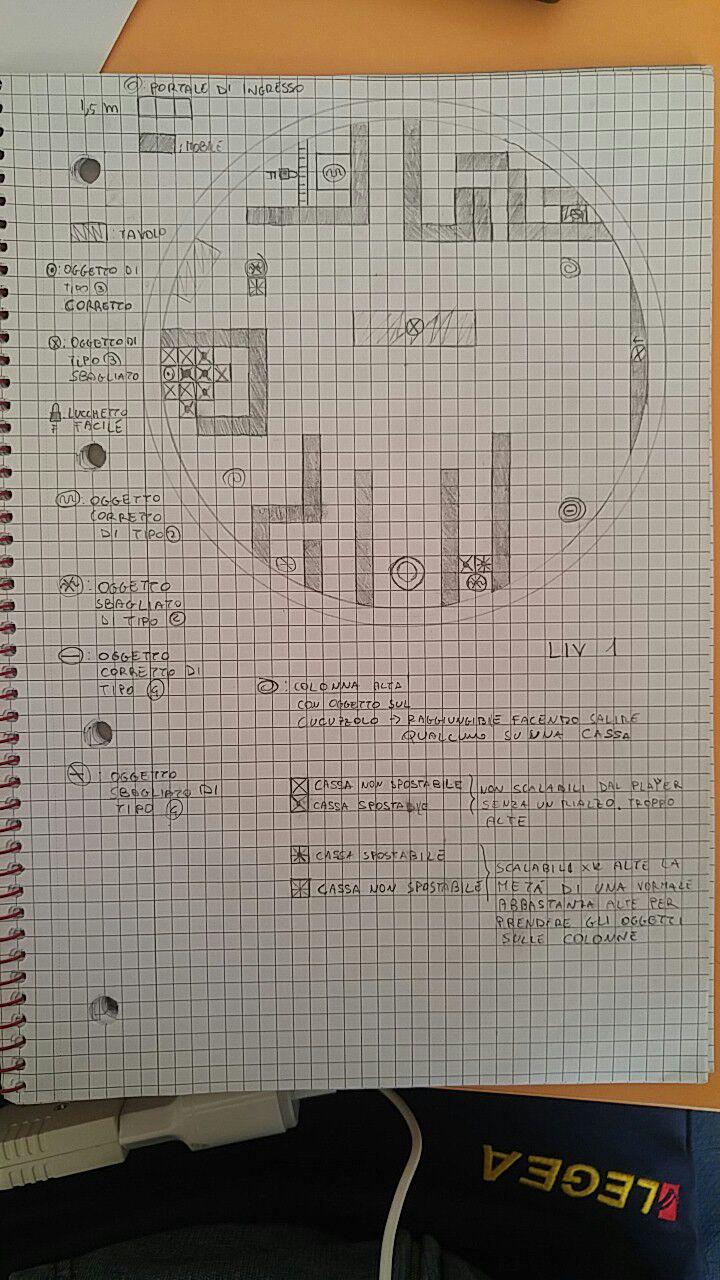 : PORTALE DI INGRESSO
1,5 m
: MOBILE
: TAVOLO
: OGGETTO DI
TIPO 3
CORRETTO
: OGGETTO DI
TIPO 3
SBAGLIATO
: LUCCHETTO
FACILE
: OGGETTO
CORRETTO
DI TIPO 2
: OGGETTO
SBAGLIATO
DI TIPO 2
LIV 1
: OGGETTO
CORRETTO DI
TIPO
: COLONNA ALTA
CON OGGETTO SUL
CUCUZZOLO → RAGGIUNGIBILE FACENDO SALIRE
QUALCUNO SU UNA CASSA
: OGGETTO
SBAGLIATO DI
TIPO
CASSA NON SPOSTABILE
CASSA SPOSTABILE
NON SCALABILI DAL PLAYER
SENZA UN RIALZO. TROPPO
ALTE
CASSA SPOSTABILE
CASSA NON SPOSTABILE
SCALABILI XK ALTE LA
METÀ DI UNA NORMALE
ABBASTANZA ALTE PER
PRENDERE GLI OGGETTI
SULLE COLONNE
LEGEA